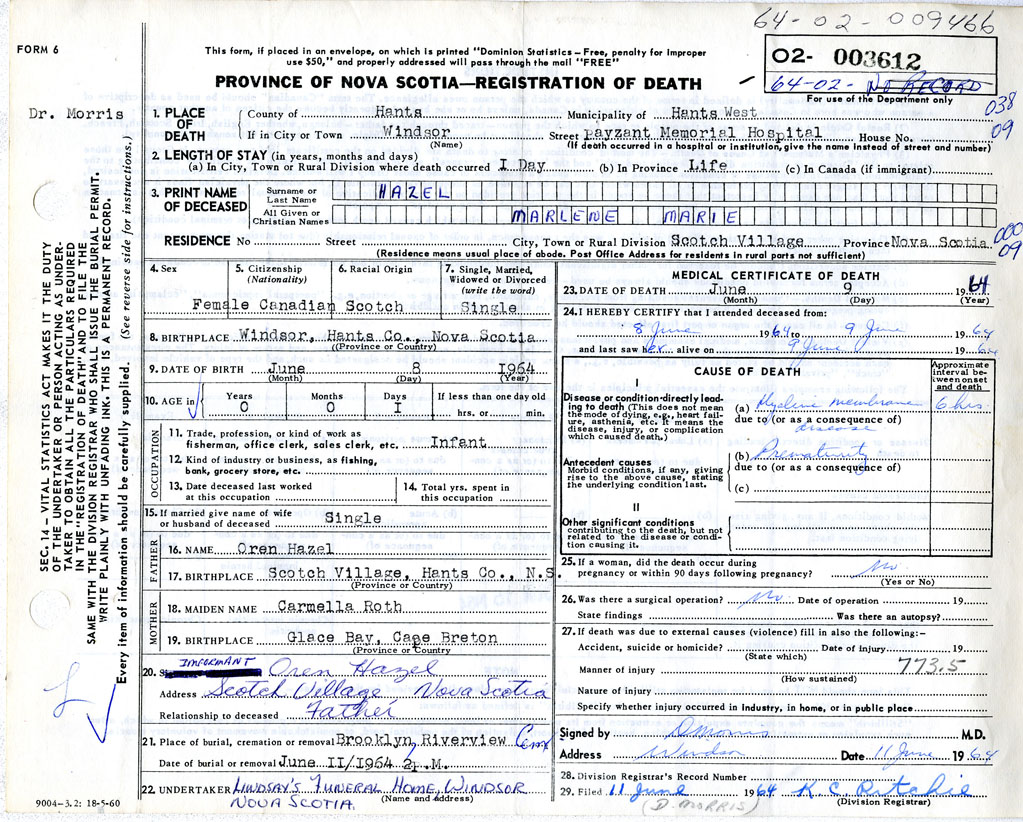 64-02-009466
FORM 6
This form, if placed in an envelope, on which is printed "Dominion Statistics—Free, penalty for improper
use $50," and properly addressed will pass through the mail "FREE"
02- 003612
64-02- No RECORD
For use of the Department only
PROVINCE OF NOVA SCOTIA—REGISTRATION OF DEATH
Dr. Morris
038
09
1. PLACE OF DEATH County of Hants Municipality of Hants West
If in City or Town Windsor Street payzant Memorial Hospital House No.
(Name) (If death occurred in a hospital or institution, give the name instead of street and number)
2. LENGTH OF STAY (in years, months and days)
(a) In City, Town or Rural Division where death occurred I Day (b) In Province Life (c) In Canada (if immigrant)
3. PRINT NAME OF DECEASED Surname or Last Name HAZEL
All Given or Christian Names MARLENE MARIE
RESIDENCE No Street City, Town or Rural Division Scotch Village Province Nova Scotia
000
09
(Residence means usual place of abode. Post Office Address for residents in rural parts not sufficient)
SEC. 14 – VITAL STATISTICS ACT MAKES IT THE DUTY
OF THE UNDERTAKER OR PERSON ACTING AS UNDER-
TAKER TO OBTAIN ALL THE PARTICULARS REQUIRED
IN THE "REGISTRATION OF DEATH" AND TO FILE THE
SAME WITH THE DIVISION REGISTRAR WHO SHALL ISSUE THE BURIAL PERMIT.
WRITE PLAINLY WITH UNFADING INK. THIS IS A PERMANENT RECORD.
Every item of information should be carefully supplied. (See reverse side for instructions.)
4. Sex Female
5. Citizenship (Nationality) Canadian
6. Racial Origin Scotch
7. Single, Married, Widowed or Divorced (write the word) Single
8. BIRTHPLACE Windsor, Hants Co., Nova Scotia
(Province or Country)
9. DATE OF BIRTH June 8 1964
(Month) (Day) (Year)
10. AGE in Years 0 Months 0 Days I If less than one day old hrs. or min.
OCCUPATION
11. Trade, profession, or kind of work as
fisherman, office clerk, sales clerk, etc. Infant
12. Kind of industry or business, as fishing,
bank, grocery store, etc.
13. Date deceased last worked
at this occupation
14. Total yrs. spent in
this occupation
15. If married give name of wife
or husband of deceased Single
FATHER
16. NAME Oren Hazel
17. BIRTHPLACE Scotch Village, Hants Co., N.S.
(Province or Country)
MOTHER
18. MAIDEN NAME Carmella Roth
19. BIRTHPLACE Glace Bay, Cape Breton
(Province or Country)
20. INFORMANT Oren Hazel
Address Scotch Village Nova Scotia
Relationship to deceased Father
21. Place of burial, cremation or removal Brooklyn, Riverview Cem
Date of burial or removal June II/1964 2 P.M.
22. UNDERTAKER LINDSAY'S FUNERAL HOME, WINDSOR
NOVA SCOTIA.
(Name and Address)
9004-3.2: 18-5-60
MEDICAL CERTIFICATE OF DEATH
23. DATE OF DEATH June 9 1964
(Month) (Day) (Year)
24. I HEREBY CERTIFY that I attended deceased from:
8 June 1964 to 9 June 1964
and last saw her alive on 9 June 1964
CAUSE OF DEATH
Approximate
interval be-
tween onset
and death
I
Disease or condition directly lead-
ing to death (This does not mean
the mode of dying, e.g., heart failure,
asthenia, etc. It means the
disease, injury, or complication
which caused death.)
(a) Hyaline membrane disease 6 hrs.
due to (or as a consequence of)
Antecedent causes
Morbid conditions, if any, giving
rise to the above cause, stating
the underlying condition last.
(b) Prematurity
due to (or as a consequence of)
(c)
II
Other significant conditions
contributing to the death, but not
related to the disease or condi-
tion causing it.
25. If a woman, did the death occur during
pregnancy or within 90 days following pregnancy? No.
(Yes or No)
26. Was there a surgical operation? No. Date of operation 19
State findings Was there an autopsy?
27. If death was due to external causes (violence) fill in also the following:–
Accident, suicide or homicide? Date of injury 19
(State which)
Manner of injury 773.5
(How sustained)
Nature of injury
Specify whether injury occurred in industry, in home, or in public place
Signed by D Morris M.D.
Address Windsor Date 11 June 1964
28. Division Registrar's Record Number
29. Filed 11 June 1964 K. C. Ritchie
(D. MORRIS) (Division Registrar)